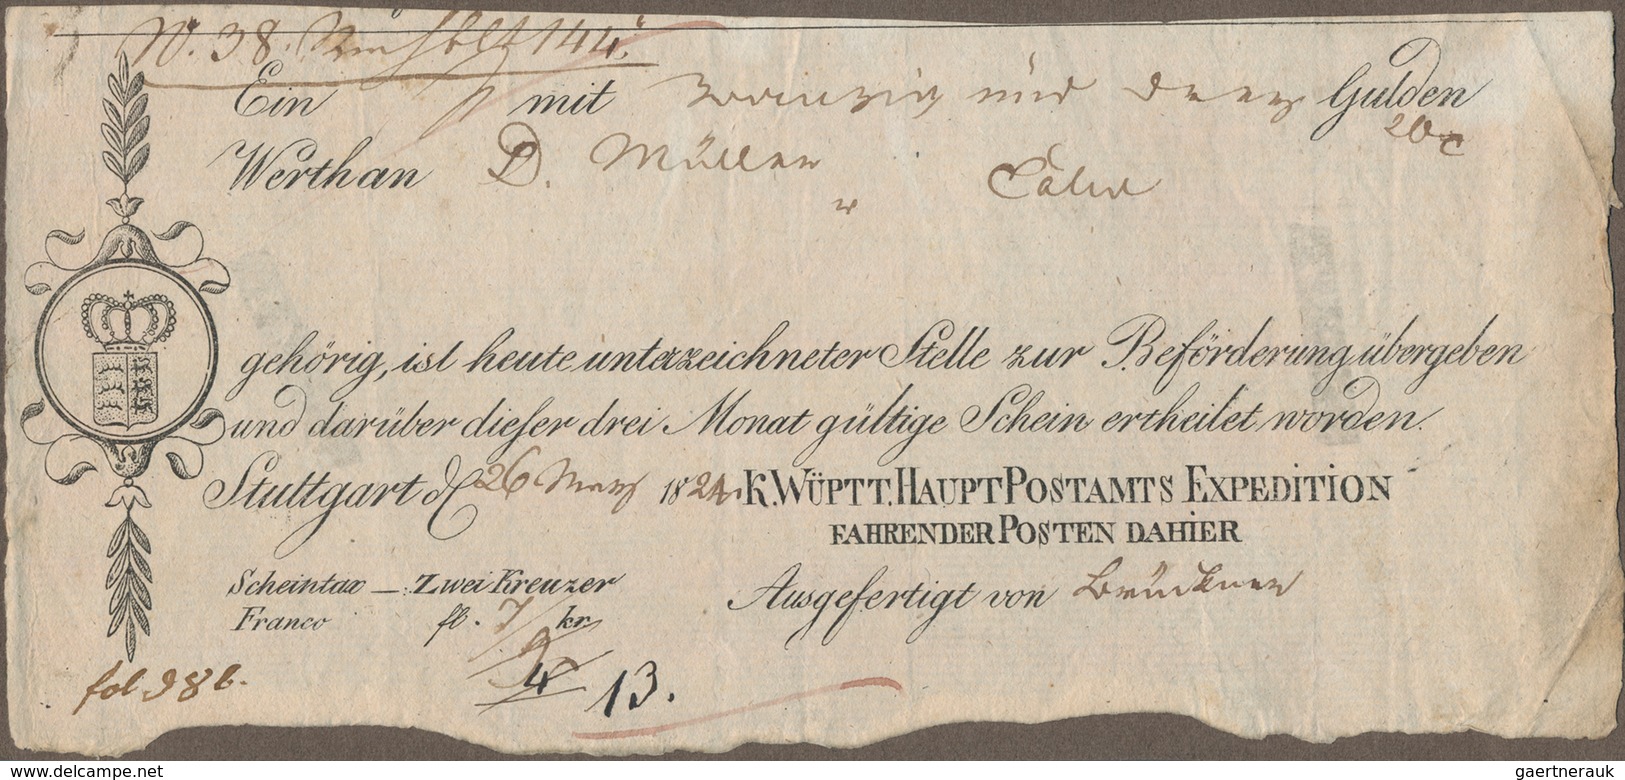 N. 38.
Ein mit Zwanzig und Gulden
Werth an D. Müller Calw
gehörig, ist heute unterzeichneter Stelle zur Beförderung übergeben
und darüber dieser drei Monat gültige Schein ertheilet worden.
Stuttgart d 26 Merz 1824. K. WÜPTT. HAUPT POSTAMTS EXPEDITION
FAHRENDER POSTEN DAHIER
Scheintax —: Zwei Kreuzer
Ausgefertigt von Brückner
Franco fl. 7 kr.
4
13.
fol 98 b.
www.delcampe.net
gaertnerauk